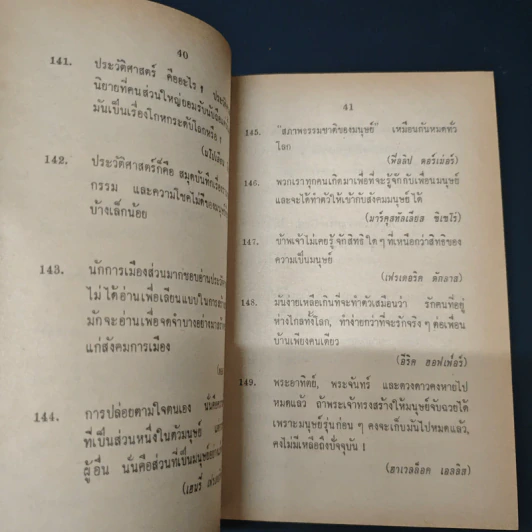 40
141. ประวัติศาสตร์ คืออะไร ?
นิยายที่คนส่วนใหญ่ยอมรับ
มันเป็นเรื่องโกหกระดับโลกหรือ
142. ประวัติศาสตร์ก็คือ สมุดบันทึกเรื่อง
กรรม และความโชคไม่ดีของมนุษย์
บ้างเล็กน้อย
143. นักการเมืองส่วนมากชอบอ่านประวัติ
ไม่ได้อ่านเพื่อเลียนแบบในการ
มักจะอ่านเพื่อจดจำบางอย่างมา
แก่สังคมการเมือง
144. การปล่อยตามใจตนเอง นั่นคือ
ที่เป็นส่วนหนึ่งในตัวมนุษย์
ผู้อื่น นั่นคือส่วนที่เป็นมนุษย์
(เฮนรี่
41
145. "สภาพธรรมชาติของมนุษย์" เหมือนกันหมดทั่ว
โลก
(ฟิลิป ดอร์เม่อร์)
146. พวกเราทุกคนเกิดมาเพื่อที่จะรู้จักกับเพื่อนมนุษย์
และจะได้ทำตัวให้เข้ากับสังคมมนุษย์ได้
(มาร์คุสทัลเลียส ซิเซโร่)
147. ข้าพเจ้าไม่เคยรู้จักสิทธิใด ๆ ที่เหนือกว่าสิทธิของ
ความเป็นมนุษย์
(เฟรเดอริค ดักลาส)
148. มันง่ายเหลือเกินที่จะทำตัวเสมือนว่า รักคนที่อยู่
ห่างไกลทั้งโลก, ทำง่ายกว่าที่จะรักจริง ๆ ต่อเพื่อน
บ้านเพียงคนเดียว
(อีริค ฮอฟเฟ่อร์)
149. พระอาทิตย์, พระจันทร์ และดวงดาวคงหายไป
หมดแล้ว ถ้าพระเจ้าทรงสร้างให้มนุษย์จับฉวยได้
เพราะมนุษย์รุ่นก่อน ๆ คงจะเก็บมันไปหมดแล้ว,
คงไม่มีเหลือถึงปัจจุบัน !
(ฮาเวลล็อค เอลลิส)